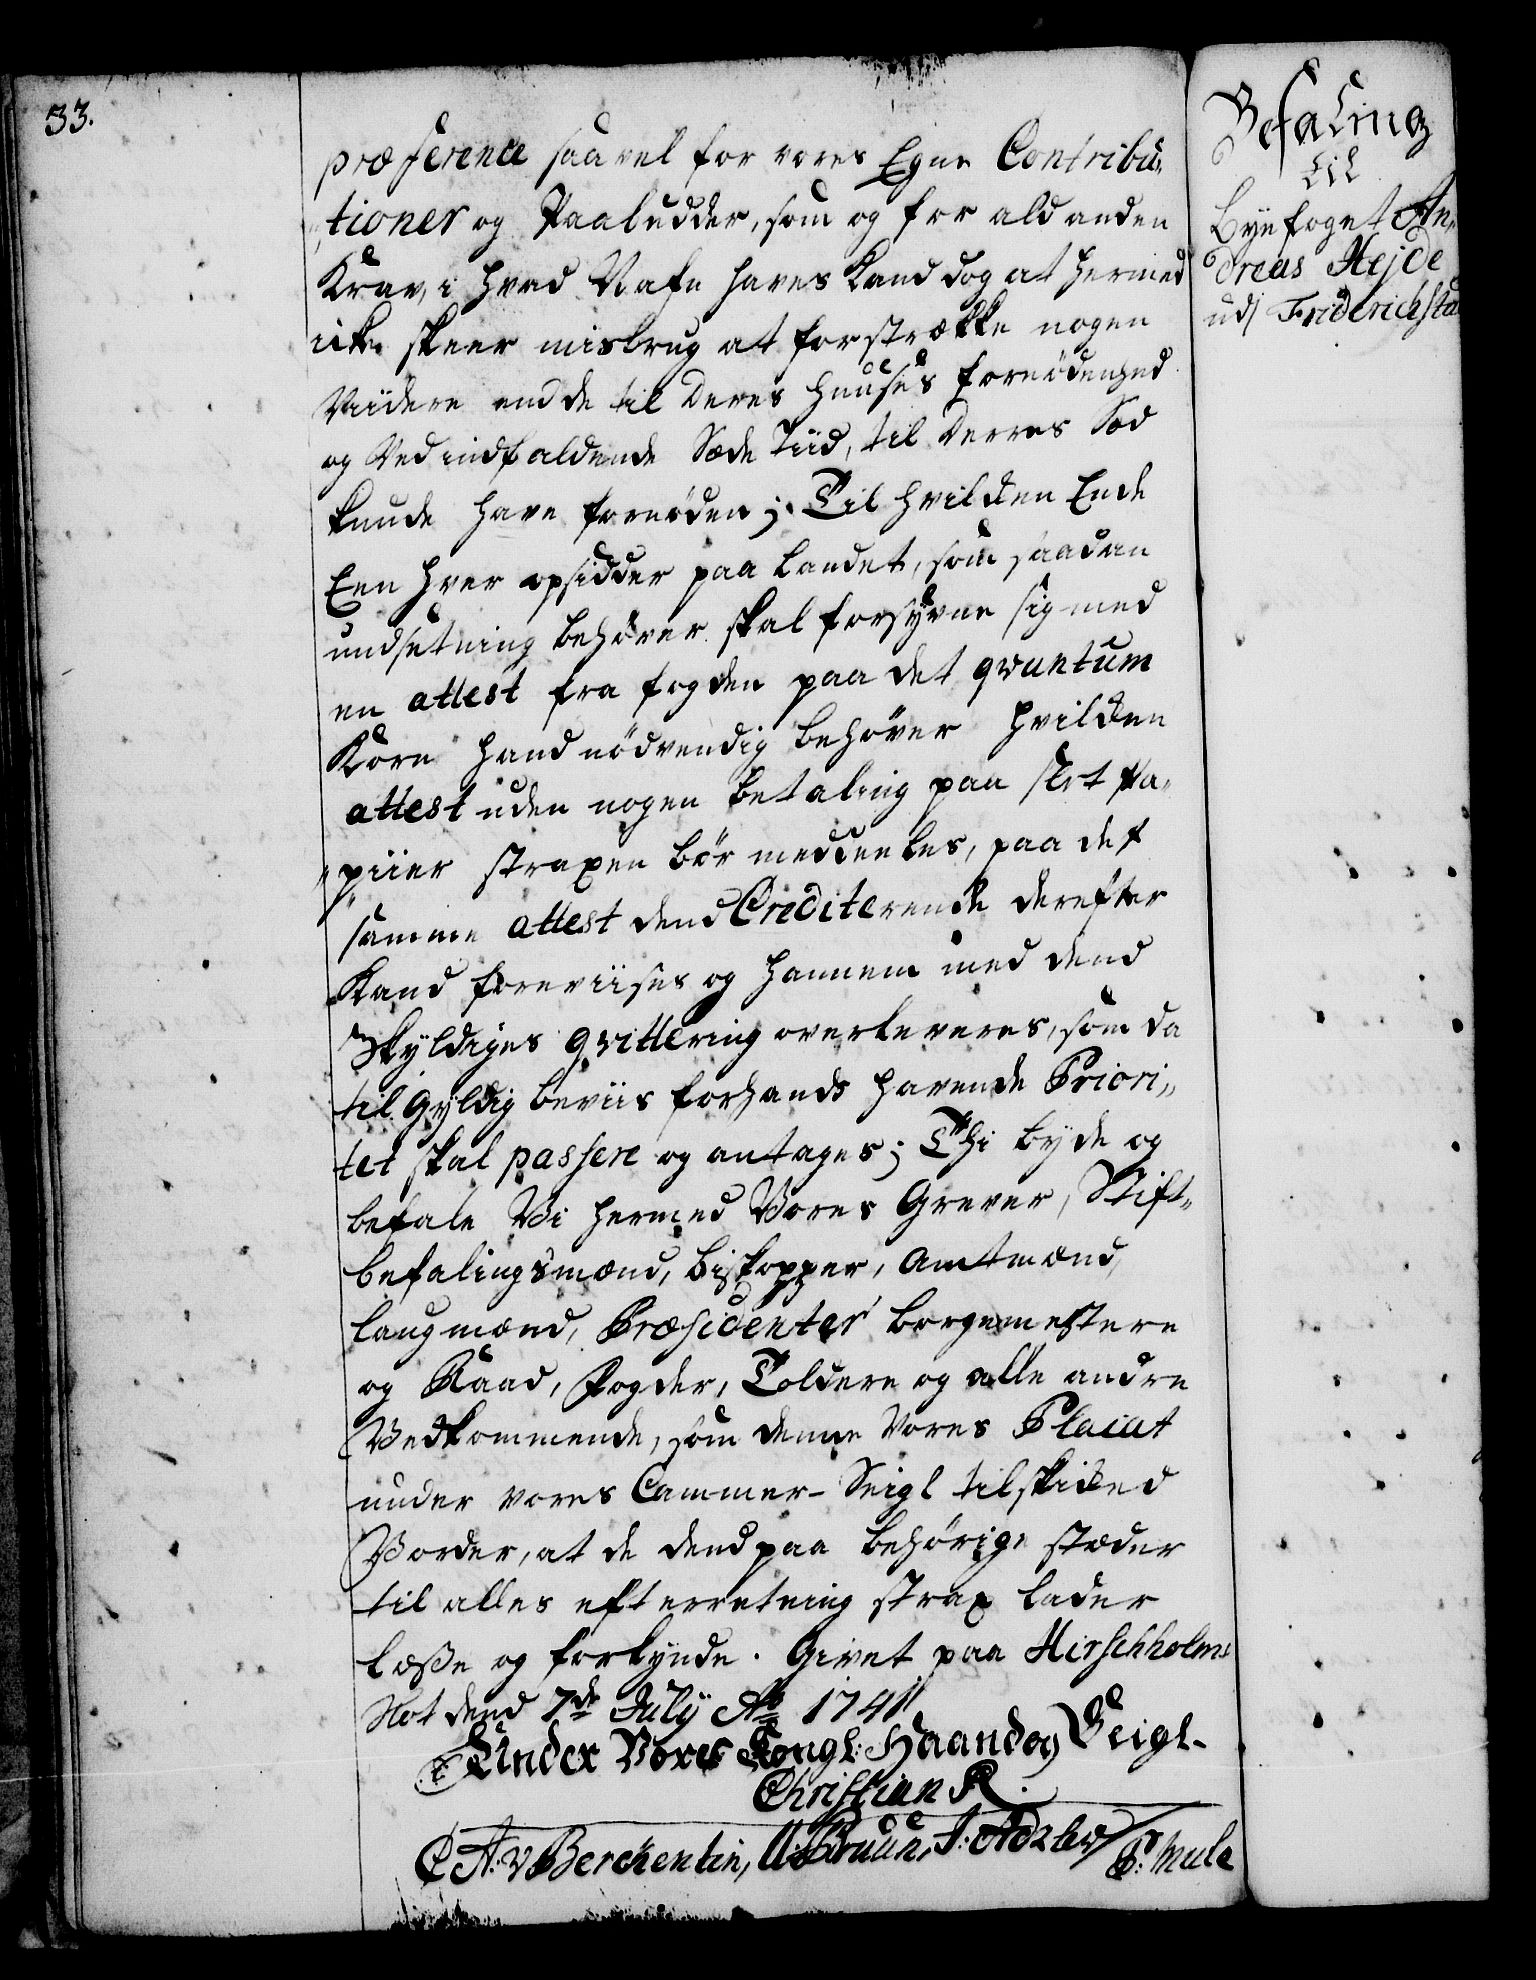 33.
præference saavel for vores Egne Contribu,,
,,tioner og Paaludder, som og for ald anden
Krav, i hvad Nafn haves Kand dog at hermed
icke skeer misbrug at forstrække nogen
Viidere end de til Deres Huuses fornødenhed
og Ved indfaldende Sæde Tiid, til Derres Sæd
kunde have fornøden; Til hvilcken Ende
Een hver opsidder paa Landet, som saadan
undsetning behøver skal forsyne sig med
en attest fra fogden paa det qvantum
Korn hand nödvendig behøver hvilcken
attest uden nogen betaling paa slet Pa,,
,,piier straxen bör meddeeles, paa det
samme attest dend Crediterende derefter
Kand foreviises og hannem med dend
Skyldiges qvittering overleveres, som da
til Gyldig beviis forhands havende Priori,,
tet skal passere og antages; Thi byde og
befale Vi hermed Vores Grever, Stift,,
befalingsmænd, Biskopper, Amtmænd,
Laugmænd, Præsidenter Borgemestere
og Raad, Fogder, Toldere og alle andre
Vedkommende, som denne Vores Placat
under Vores Cammer-Seigl tilskicked
Vorder, at de dend paa behörige stæder
til alles efterretning strax lader
læsse og forkynde. Givet paa Hirschholms
Slot dend 7de July Ao 1741
Under Vores Kongl: Haand og Seigl.
Christian R.
C A: v Berckentin, Bruun, J: Adzler / P: Mule
Befaling
til
Byefoget An,,
dreas Hejde
udj Friderichsta